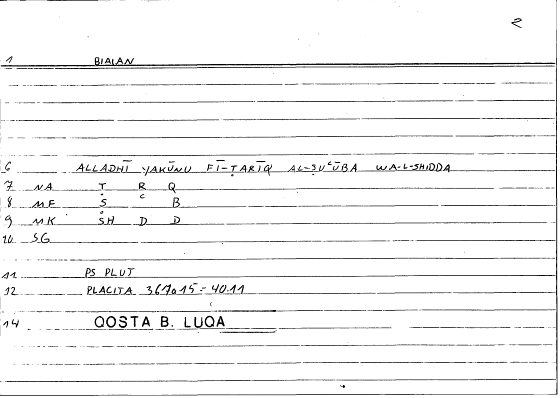 2
1 BIAIAN
6 ALLADHĪ YAKŪNU FĪ-ṬARĪQ AL-ṢUᶜŪBA WA-L-SHIDDA
7 NA Ṭ R Q
8 MF Ṣ ᶜ B
9 MK SH D D
10 SG
11 PS PLUT
12 PLACITA 367a15 = 40.11
14 QOSTA B. LUQA